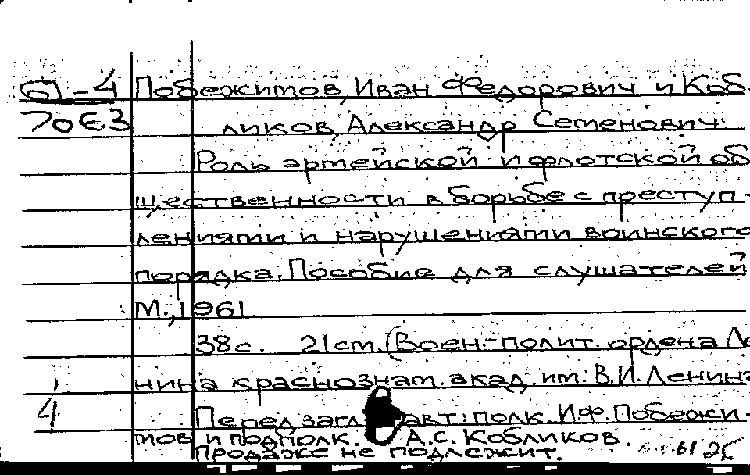 61-4 Победитов, Иван Федорович и Коб-
70Е3 ликов, Александр Семенович.
Роль армейской и флотской об
щественности в борьбе с преступ-
лениями и нарушениями воинского
порядка. Пособие для слушателей
М., 1961
38с. 21см. (Воен.-полит. ордена Ле
нина краснознам. акад. им. В.И. Ленина
4 Перед загл. авт.: полк. И.Ф. Побежи-
мов и подполк. А.С. Кобликов.
Продаже не подлежит.